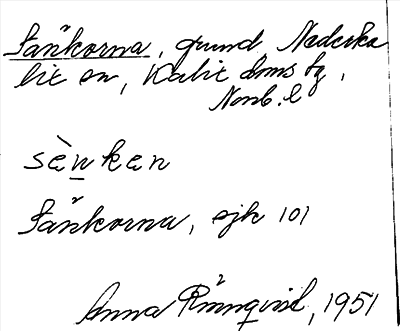 Sänkorna, grund Nederka
lix sn, Kalix ... by,
Norrb. l
sènken
Sänkorna, sjk 101
Anna Rönnqvist, 1951